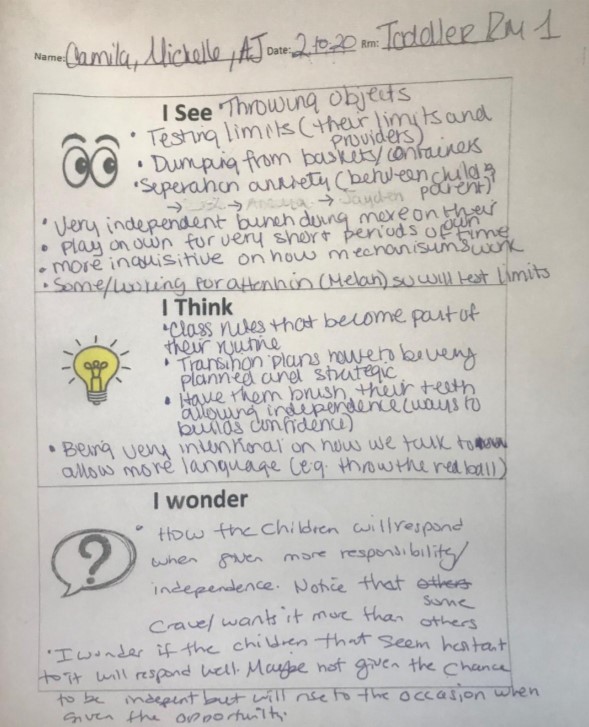 Name: Camila, Michelle, AJ Date: 2.10.20 Rm: Toddler RM 1
I See Throwing Objects
• Testing limits (their limits and
providers)
• Dumping from baskets/containers
• Seperation anxiety (between child &
parent)
→ → → Jayden
• Very independent bunch doing more on their
own
• play on own for very short periods of time
• more inquisitive on how mechanisums work
• Some/looking for attention (Melah) so will test limits
I Think
• Class rules that become part of
their routine
• Transition plans have to be very
planned and strategic
• Have them brush their teeth
allowing independence (ways to
builds confidence)
• Being very intentional on how we talk to
allow more language (e.g. throw the red ball)
I wonder
• How the children will respond
when given more responsibility/
independence. Notice that others
some
Crave/wants it more than others
• I wonder if the children that seem hesitant
to it will respond well. Maybe not given the chance
to be indepent but will rise to the occasion when
given the opportunity.